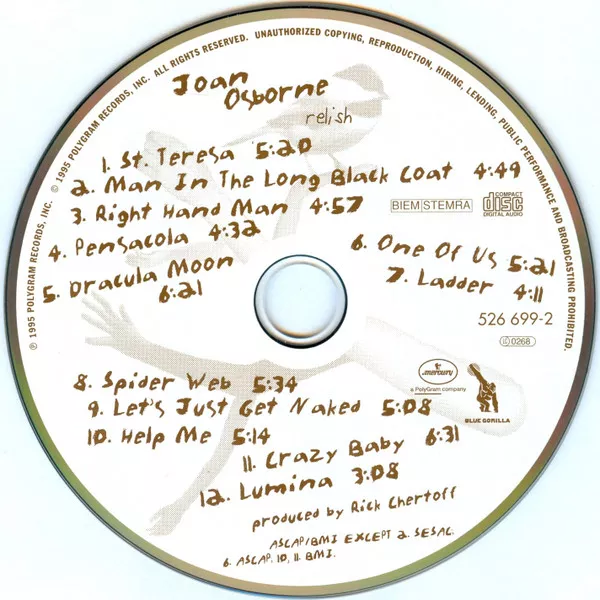 ℗ 1995 POLYGRAM RECORDS, INC. © 1995 POLYGRAM RECORDS, INC. ALL RIGHTS RESERVED. UNAUTHORIZED COPYING, REPRODUCTION, HIRING, LENDING, PUBLIC PERFORMANCE AND BROADCASTING PROHIBITED.
Joan
Osborne
relish
1. St. Teresa 5:20
2. Man In The Long Black Coat 4:49
3. Right Hand Man 4:57
BIEM STEMRA
COMPACT
disc
DIGITAL AUDIO
4. Pensacola 4:32
5. Dracula Moon
6:21
6. One Of Us 5:21
7. Ladder 4:11
526 699-2
LC 0268
8. Spider Web 5:34
9. Let's Just Get Naked 5:08
10. Help Me 5:14
11. Crazy Baby 6:31
12. Lumina 3:08
mercury
a PolyGram company
BLUE GORILLA
produced by Rick Chertoff
ASCAP/BMI EXCEPT 2. SESAC.
6. ASCAP. 10, 11. BMI.